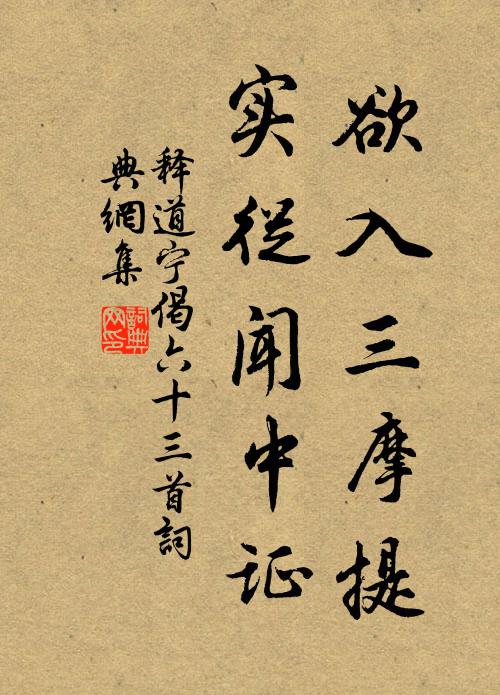 欲入三摩提
实從闻中证
释道宁偈六十三首詞
典網集
詞典
网印